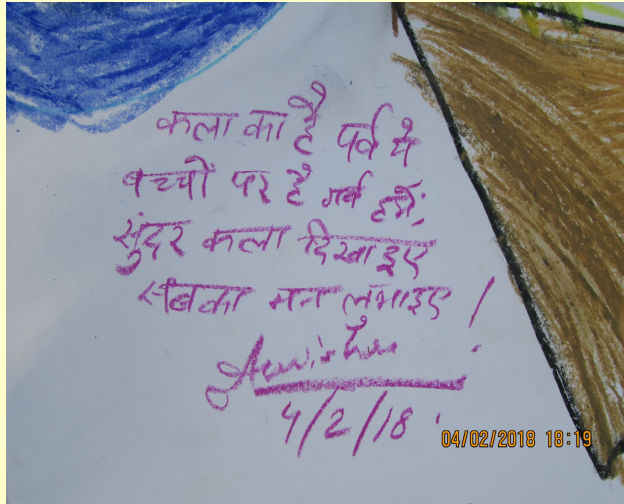 कला का है पर्व ये
बच्चों पर है गर्व हमें,
सुंदर कला दिखाइए
सबका मन लुभाइए !
4/2/18.
04/02/2018 18:19